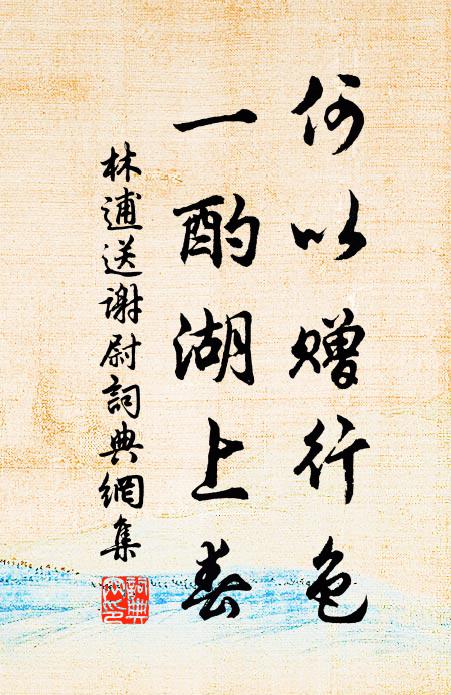 何以赠行色
一酌湖上春
林逋送谢尉詞典網集